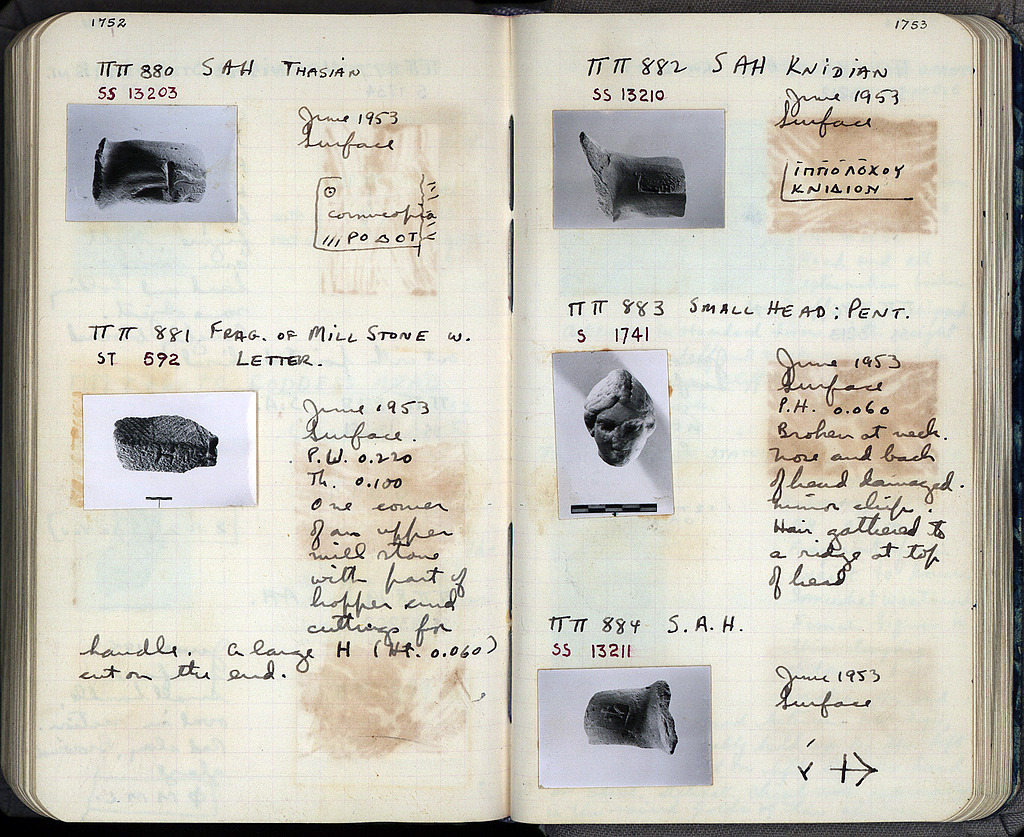 1752
ΠΠ 880 SAH THASIAN
SS 13203
June 1953
Surface
cornucopia
///ΡΟΔΟΤ
ΠΠ 881 FRAG. OF MILL STONE W.
ST 592 LETTER.
June 1953
Surface.
P.W. 0.220
Th. 0.100
One corner
of an upper
mill stone
with part of
hopper and
cuttings for
handle. A large H (Ht. 0.060)
cut on the end.
1753
ΠΠ 882 SAH KNIDIAN
SS 13210
June 1953
Surface
ΙΠΠΟΛΟΧΟΥ
ΚΝΙΔΙΟΝ
ΠΠ 883 SMALL HEAD; PENT.
S 1741
June 1953
Surface
P.H. 0.060
Broken at neck.
Nose and back
of head damaged.
minor chips.
Hair gathered to
a ridge at top
of head
ΠΠ 884 S.A.H.
SS 13211
June 1953
Surface